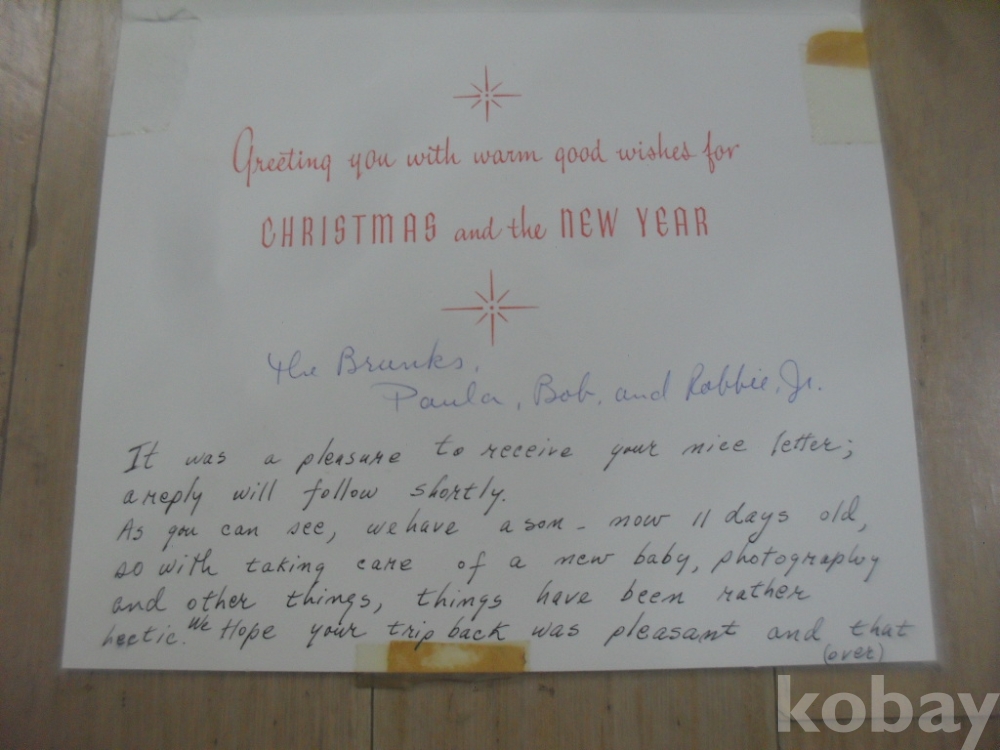 Greeting you with warm good wishes for
CHRISTMAS and the NEW YEAR
The Brunks,
Paula, Bob, and Robbie, Jr.
It was a pleasure to receive your nice letter;
a reply will follow shortly.
As you can see, we have a son - now 11 days old,
so with taking care of a new baby, photography
and other things, things have been rather
hectic. We Hope your trip back was pleasant and that
(over)
kobay